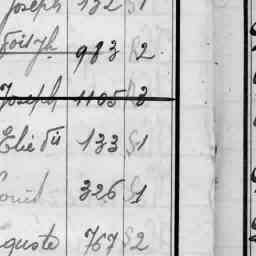 Joseph 132 S1
Joseph 983 R2
Joseph 1105 R3
Elie dit 133 S1
Louis 326 S1
guste 767 S2